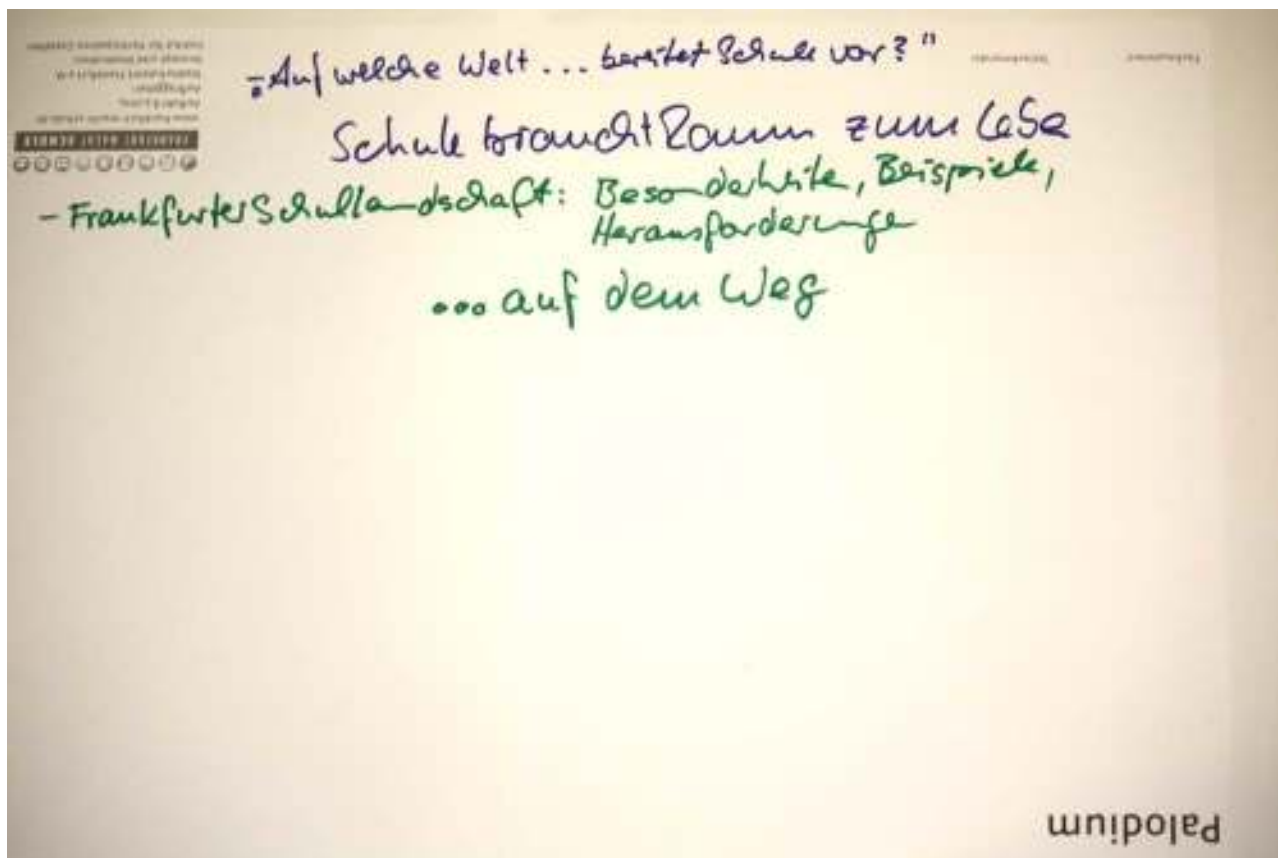 „Auf welche Welt... bereitet Schule vor?"
Schule braucht Raum zum Lebe
- Frankfurter Schullandschaft: Besonderheiten, Beispiele,
Herausforderungen
...auf dem Weg
Palodium